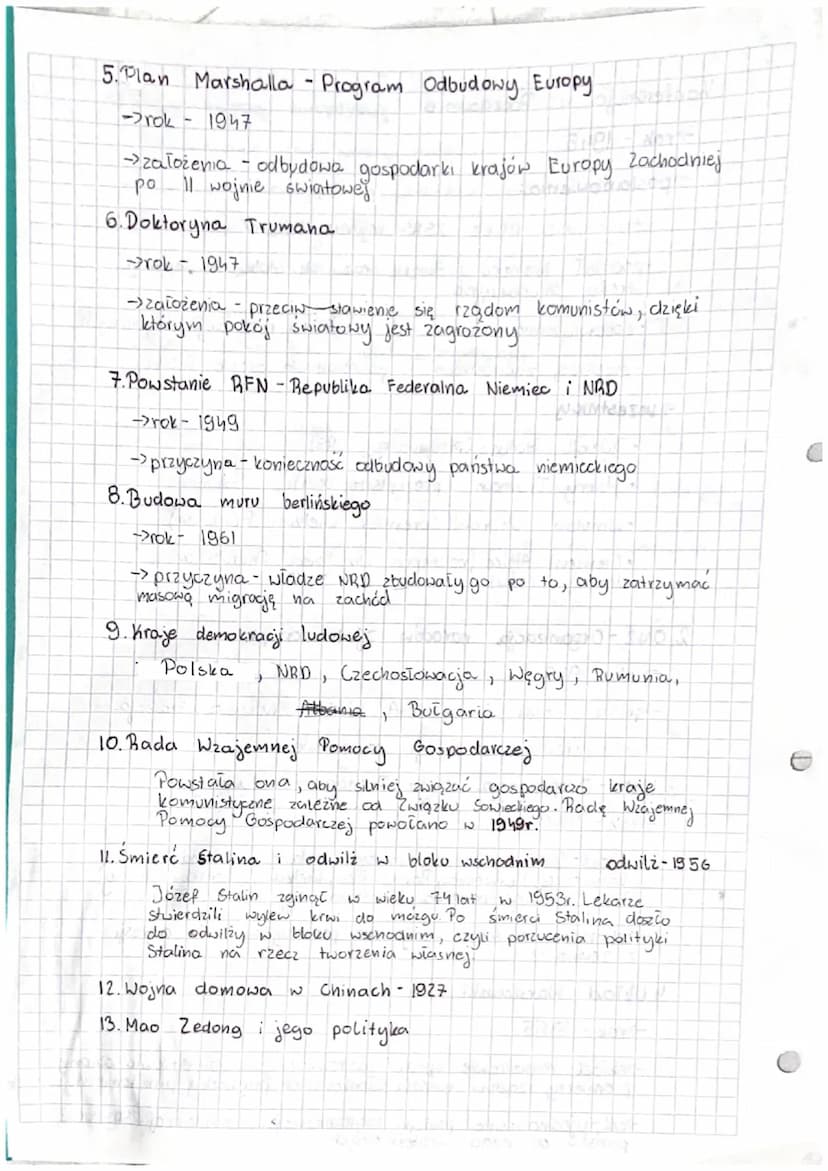 5. Plan Marshalla - Program Odbudowy Europy
->rok - 1947
->założenia - odbudowa gospodarki krajów Europy Zachodniej
po II wojnie światowej
6. Doktoryna Trumana
->rok - 1947
->założenia - przeciw stawienie się rządom komunistów, dzięki
którym pokój światowy jest zagrożony
7. Powstanie RFN - Republika Federalna Niemiec i NRD
->rok - 1949
->przyczyna - konieczność odbudowy państwa niemieckiego
8. Budowa muru berlińskiego
->rok - 1961
-> przyczyna - władze NRD zbudowały go po to, aby zatrzymać
masową migrację na zachód
9. Kraje demokracji ludowej
Polska, NRD, Czechosłowacja, Węgry, Rumunia,
Albania, Bułgaria
10. Rada Wzajemnej Pomocy Gospodarczej
Powstała ona, aby silniej związać gospodarczo kraje
komunistyczne zależne od Związku Sowieckiego. Radę Wzajemnej
Pomocy Gospodarczej powołano w 1949r.
11. Śmierć Stalina i odwilż w bloku wschodnim odwilż - 1956
Józef Stalin zginął w wieku 74 lat w 1953r. Lekarze
stwierdzili wylew krwi do mózgu. Po śmierci Stalina doszło
do odwilży w bloku wschodnim, czyli porzucenia polityki
Stalina na rzecz tworzenia własnej.
12. Wojna domowa w Chinach - 1927
13. Mao Zedong i jego polityka